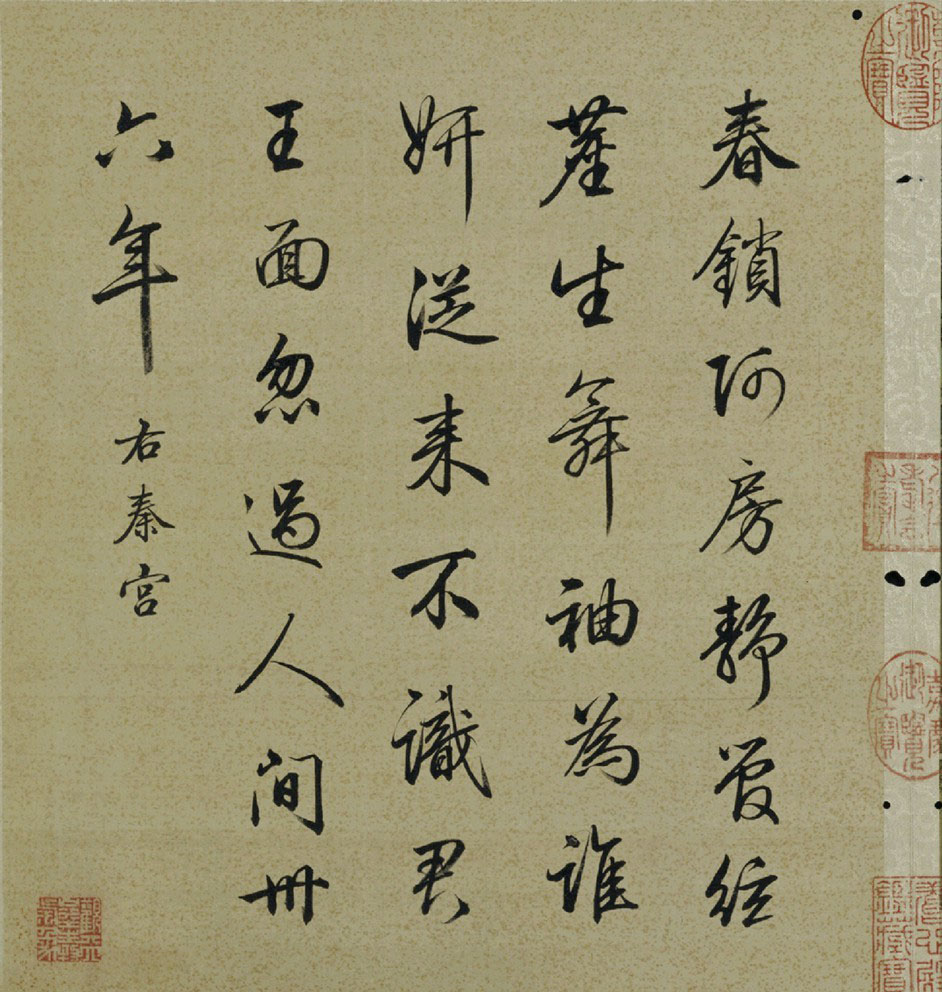 春鎖阿房靜管絃
塵生舞袖為誰
妍從来不識君
王面忽過人間卅
六年 右秦宮